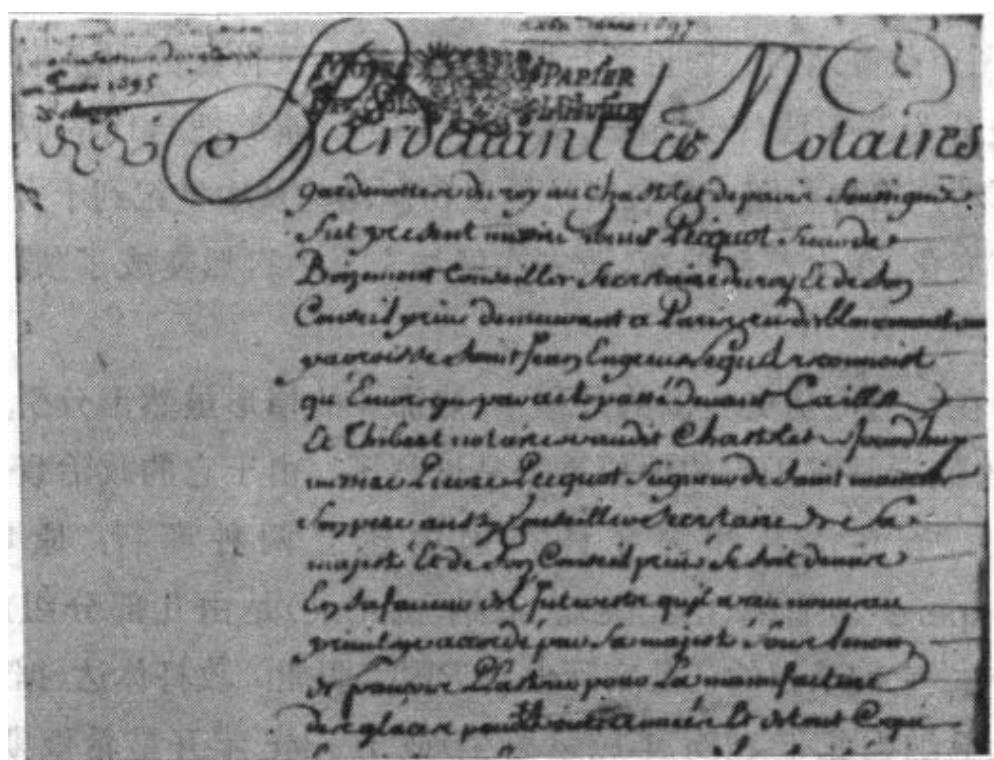 1697
1695
PAPIER
Pardevant Les Notaires
gardenottes du roy au Chastelet de paris soussignez
fut present messire Louis Pecquot sieur de
Conseiller Secretaire du roy Et de son
Conseil privé demeurant a Paris rue des blancs manteaux
parroisse Saint Jean En greve Lequel reconnoist
qu'Encore que par acte passé devant Caillet
Et Thibert notaires audit Chastelet Jourdhuy
messire Pierre Pecquot Seigneur de Saint maurice
son pere aussy Conseiller Secretaire de Sa
majesté Et de son Conseil privé se soit demis
En sa faveur de l'Interest qu'il a au nouveau
privilege accordé par Sa majesté Sous le nom
de françois Plastrier pour La manufacture
des glaces pour trente années Et de tout Ce qui